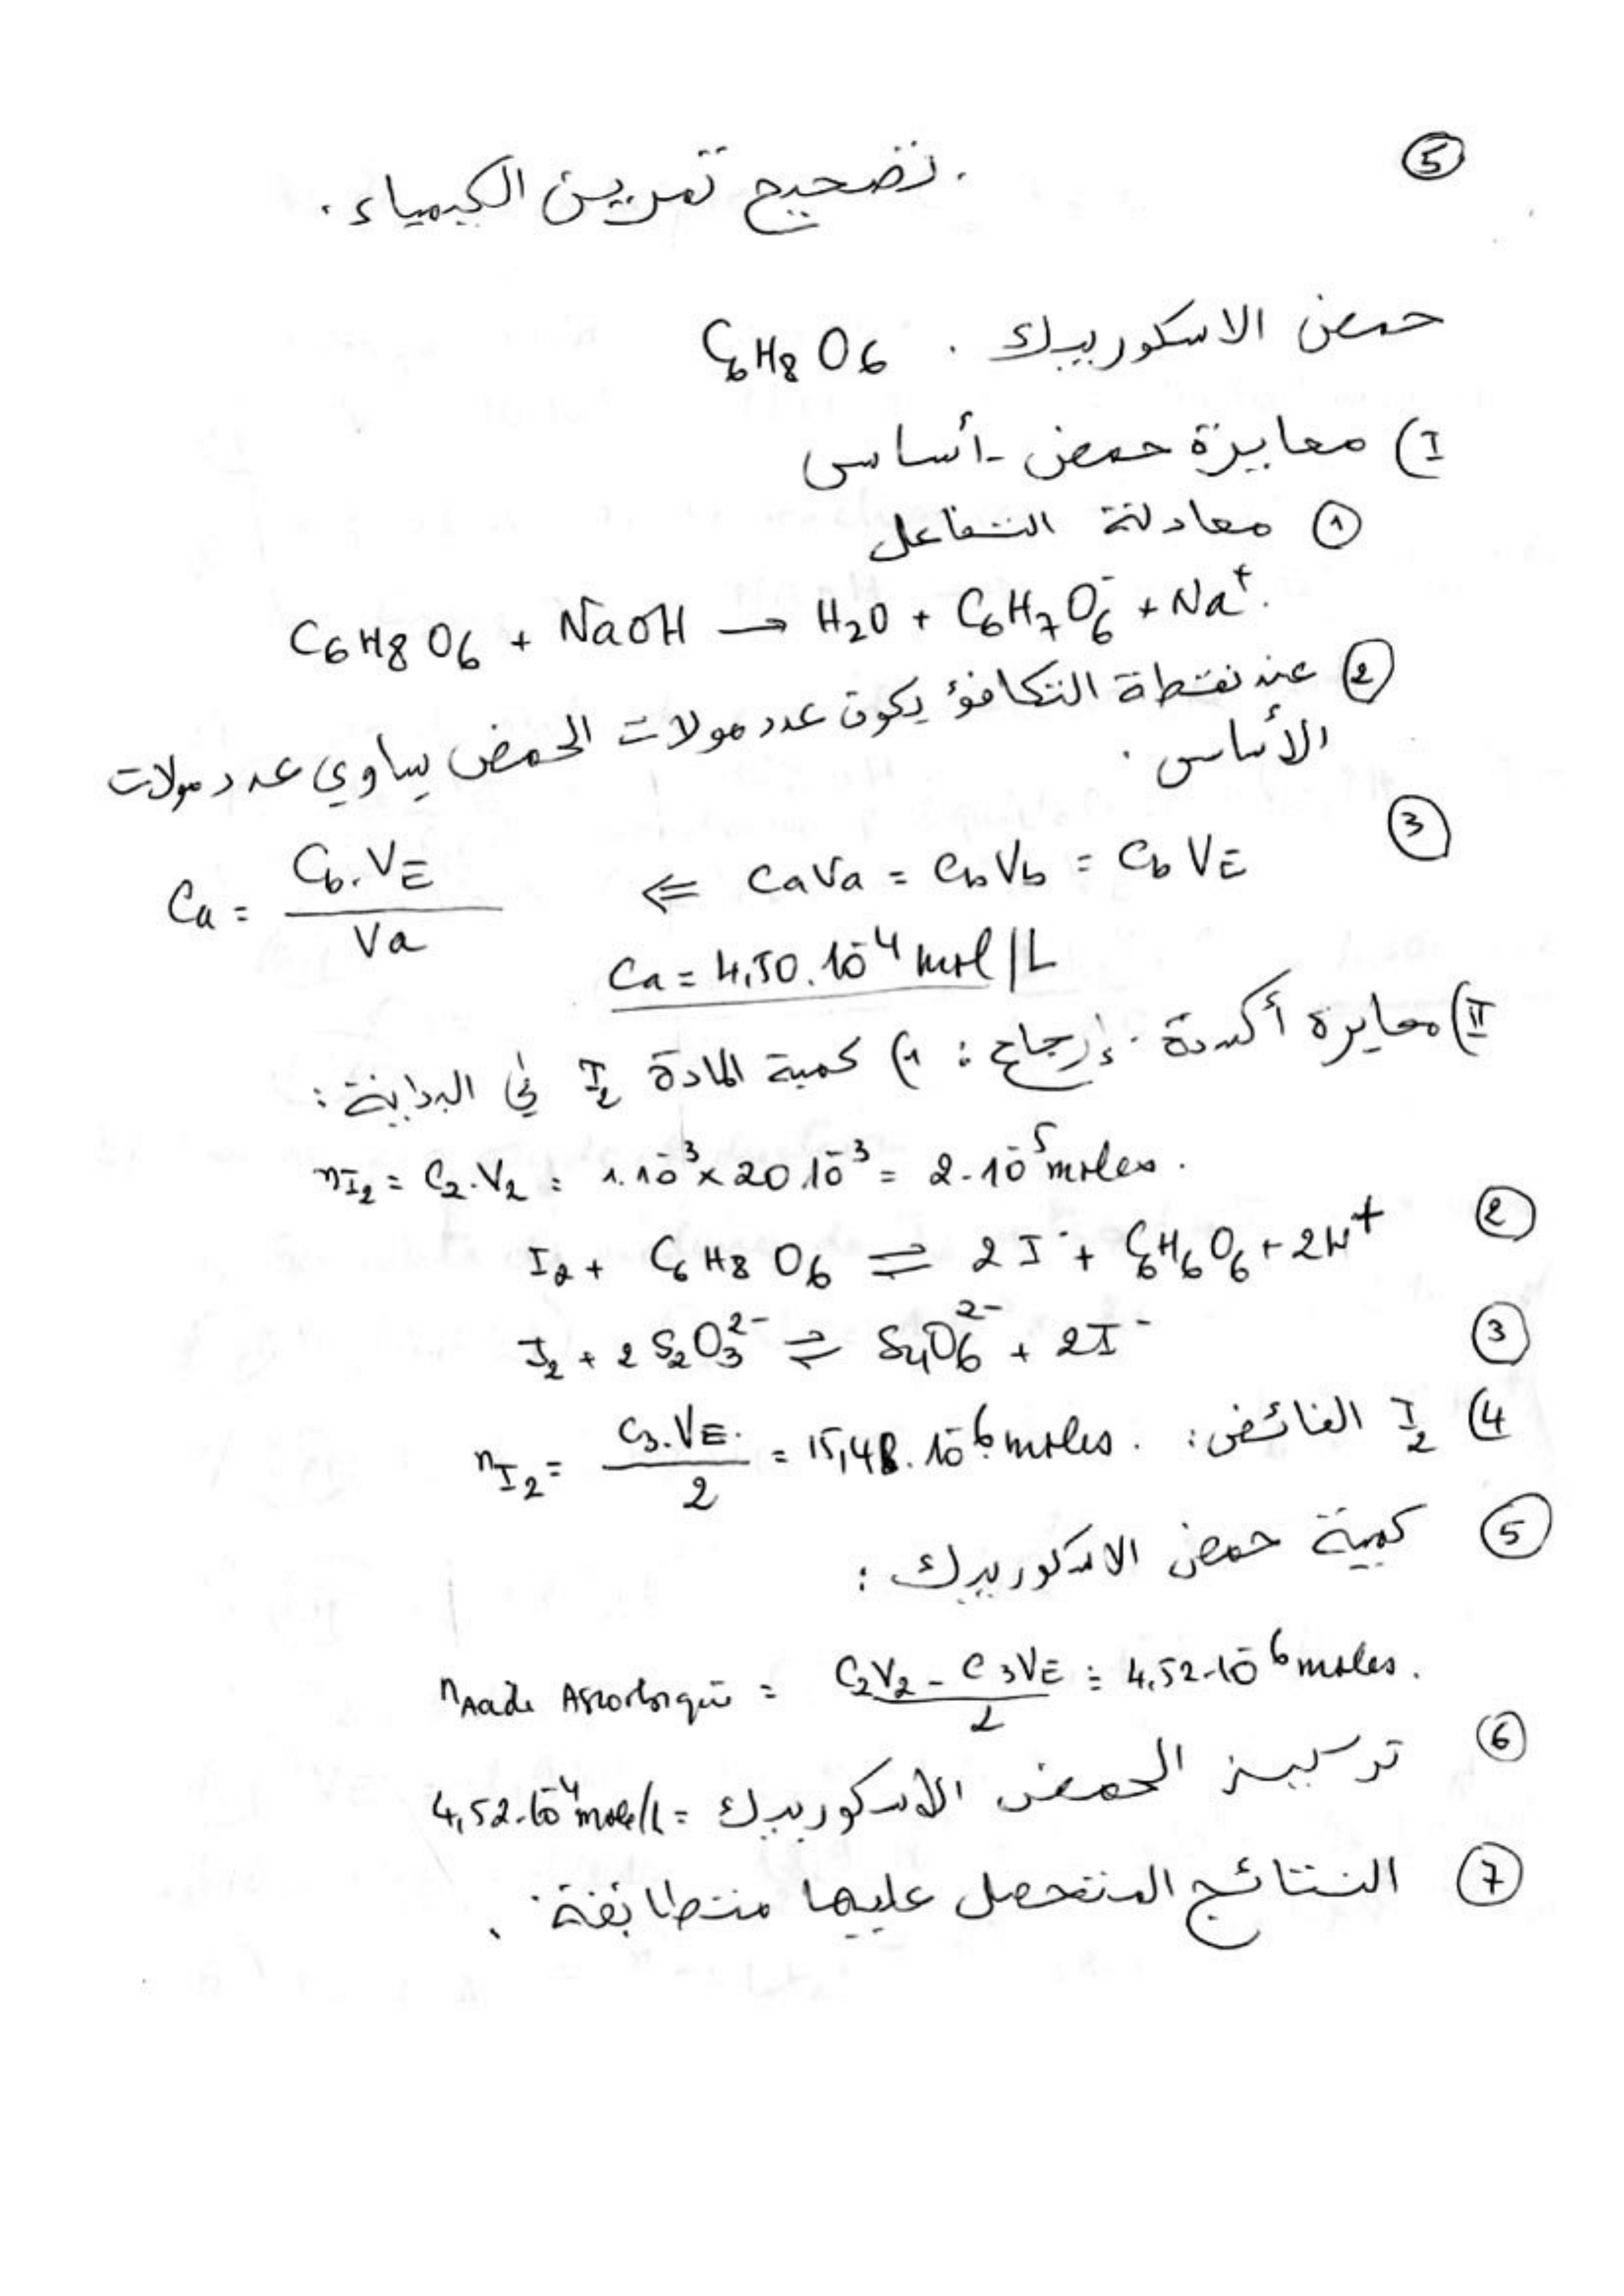 ⑤
تصحيح تمرين الكيمياء.
حمض الاسكوربيك . C6H8O6
I) معايرة حمض - أساس
① معادلة التفاعل
C6H8O6 + NaOH → H2O + C6H7O6⁻ + Na⁺.
② عند نقطة التكافؤ يكون عدد مولات الحمض يساوي عدد مولات
الأساس .
③ CaVa = CbVb = CbVE ⇐ Ca = Cb.VE / Va
Ca = 4,50.10⁻⁴ mol/L
II) معايرة أكسدة - إرجاع : 1) كمية المادة I2 في البداية :
nI2 = C2.V2 = 1.10⁻³ x 20.10⁻³ = 2.10⁻⁵ moles.
② I2 + C6H8O6 ⇌ 2I⁻ + C6H6O6 + 2H⁺
③ I2 + 2S2O3²⁻ ⇌ S4O6²⁻ + 2I⁻
4) I2 الفائض : nI2 = C3.VE / 2 = 15,48.10⁻⁶ moles.
⑤ كمية حمض الاسكوربيك :
nAcide Ascorbique = C2V2 - C3VE / 2 = 4,52.10⁻⁶ moles.
⑥ تركيز الحمض الاسكوربيك = 4,52.10⁻⁴ mole/l
⑦ النتائج المتحصل عليها متطابقة .